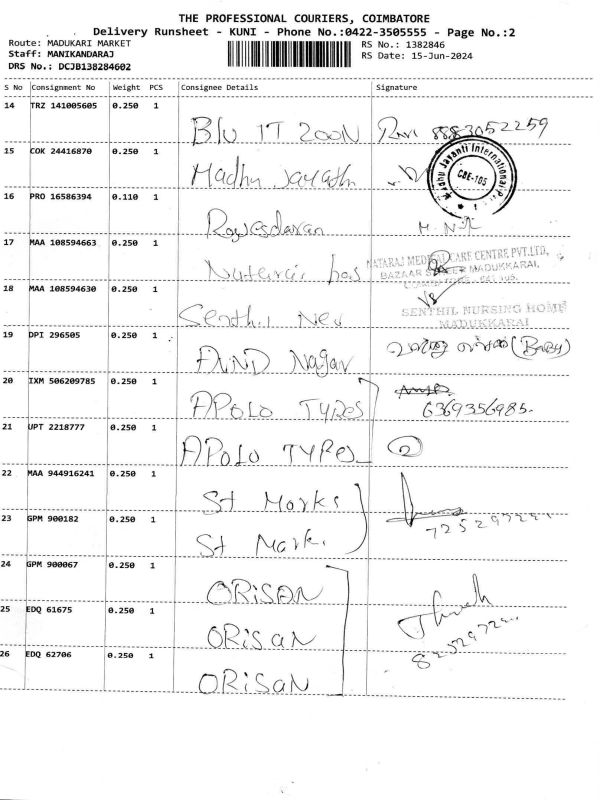 THE PROFESSIONAL COURIERS, COIMBATORE
Delivery Runsheet - KUNI - Phone No.:0422-3505555 - Page No.:2
Route: MADUKARI MARKET
Staff: MANIKANDARAJ
DRS No.: DCJB138284602
RS No.: 1382846
RS Date: 15-Jun-2024
S No Consignment No Weight PCS Consignee Details Signature
14 TRZ 141005605 0.250 1
B/U IT ZOON Ravi 8883052259
15 COK 24416870 0.250 1
Madhu Jayanthi
Madhu Jayanti International P
CBE-105
16 PRO 16586394 0.110 1
17 MAA 108594663 0.250 1
NATARAJ MEDICAL CARE CENTRE PVT.LTD,
BAZAAR STREET MADUKKARAI,
18 MAA 108594630 0.250 1
Senthil
SENTHIL NURSING HOME
MADUKKARAI
19 DPI 296505 0.250 1
Nagar (Baby)
20 IXM 506209785 0.250 1
APOLO TYRES 6369356985
21 UPT 2218777 0.250 1
APOLO TYRES 2
22 MAA 944916241 0.250 1
St Marks
23 GPM 900182 0.250 1
St Mark.
24 GPM 900067 0.250 1
ORISAN
25 EDQ 61675 0.250 1
ORISAN
26 EDQ 62706 0.250 1
ORISAN